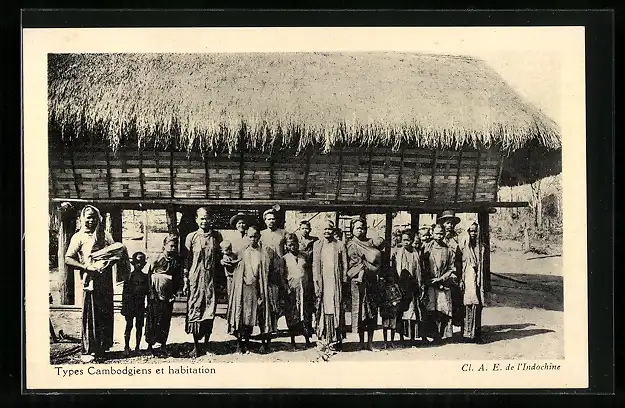 Types Cambodgiens et habitation
Cl. A. E. de l'Indochine